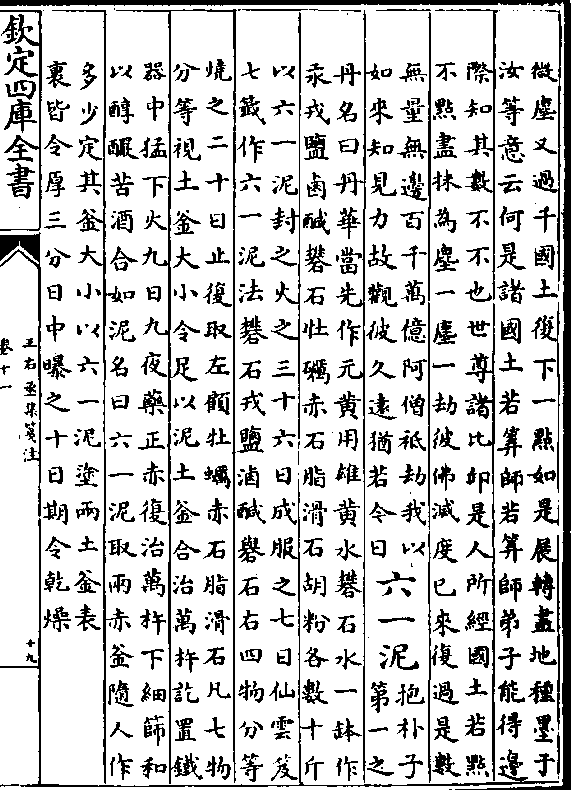 微塵又過千國土復下一點如是展轉盡地種墨于
汝等意云何是諸國土若筭師若筭師弟子能得邊
際知其數不不也世尊諸比邱是人所經國土若點
不點盡抹為塵一塵一劫彼佛滅度已來復過是數
無量無邊百千萬億阿僧祗劫我以
如來知見力故觀彼久遠猶若今日
六一泥
抱朴子
第一之
丹名曰丹華當先作元黄用雄黄水礬石水一鉢作
汞戎鹽鹵醎礬石牡礪赤石脂滑石胡粉各數十斤
以六一泥封之火之三十六日成服之七日仙雲笈
七籤作六一泥法礬石戎鹽滷醎礜石右四物分等
燒之二十日止復取左顧牡蠣赤石脂滑石凡七物
分等視土釜大小令足以泥土釜合治萬杵訖置鐵
器中猛下火九日九夜藥正赤復治萬杵下細篩和
以醇醼苦酒合如泥名曰六一泥取兩赤釜隨人作
多少定其釜大小以六一泥塗兩土釜表
裏皆令厚三分日中曝之十日期令乾燥
欽定四庫全書
王右丞集箋注
卷十一
十九